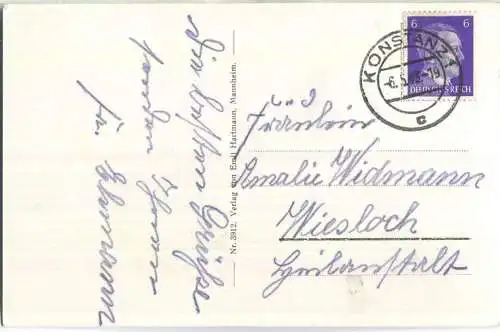 Die besten Grüße
senden Ihnen
Fr.
Nr. 3912. Verlag von Emil Hartmann, Mannheim.
6 6
DEUTSCHES REICH
KONSTANZ 1
c
Fräulein
Amalie Widmann
Wiesloch
Heilanstalt